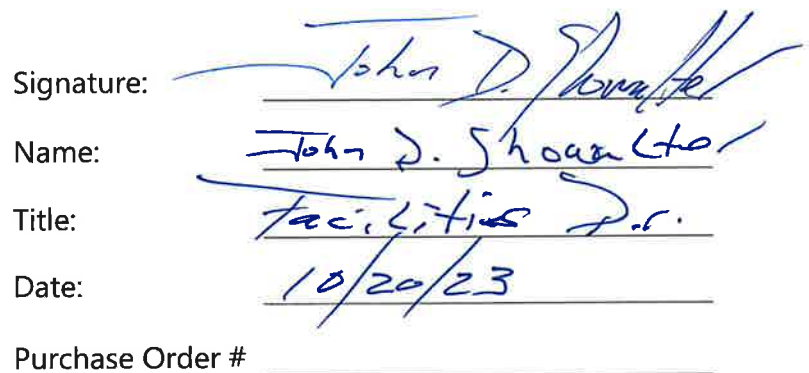 Signature: John D. Showalter
Name: John D. Showalter
Title: Facilities Dir.
Date: 10/20/23
Purchase Order #